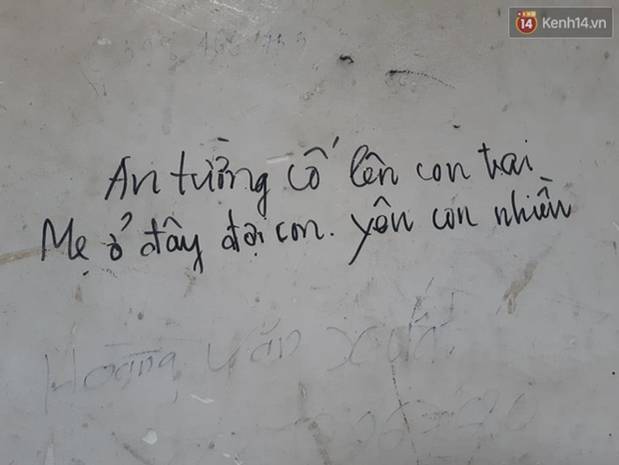 14 Kenh14.vn
An tường cố lên con trai
Mẹ ở đây đợi con. yêu con nhiều
Hoàng Văn